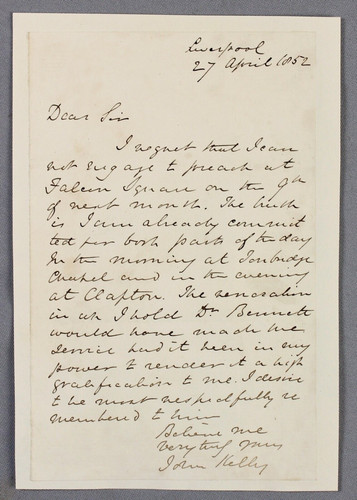 Liverpool
27 April 1852
Dear Sir
I regret that I can
not engage to preach at
Falcon Square on the 9th
of next month. The truth
is I am already commit
ted for both parts of the day
In the morning at Tonbridge
Chapel and in the evening
at Clapton. The veneration
in wh I hold Dr Bennett
would have made the
service had it been in my
power to render it a high
gratification to me. I desire
to be most respectfully re
membered to him
Believe me
very truly yours
John Kelly